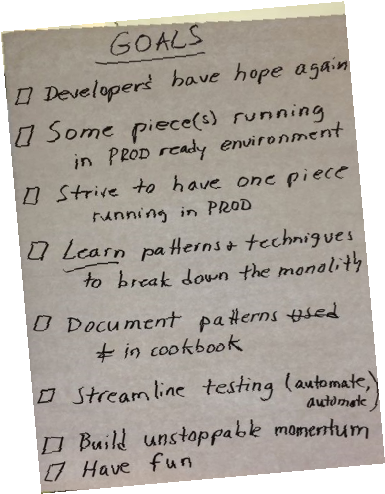 GOALS
Developers' have hope again
Some piece(s) running
in PROD ready environment
Strive to have one piece
running in PROD
Learn patterns & techniques
to break down the monolith
Document patterns used
in cookbook
Streamline testing (automate,
automate)
Build unstoppable momentum
Have fun